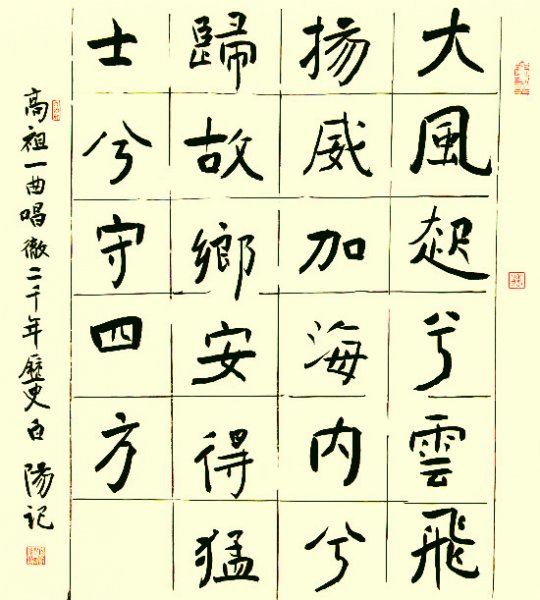 大風起兮雲飛
揚威加海内兮
歸故鄉安得猛
士兮守四方
高祖一曲唱徹二千年歷史白陽记